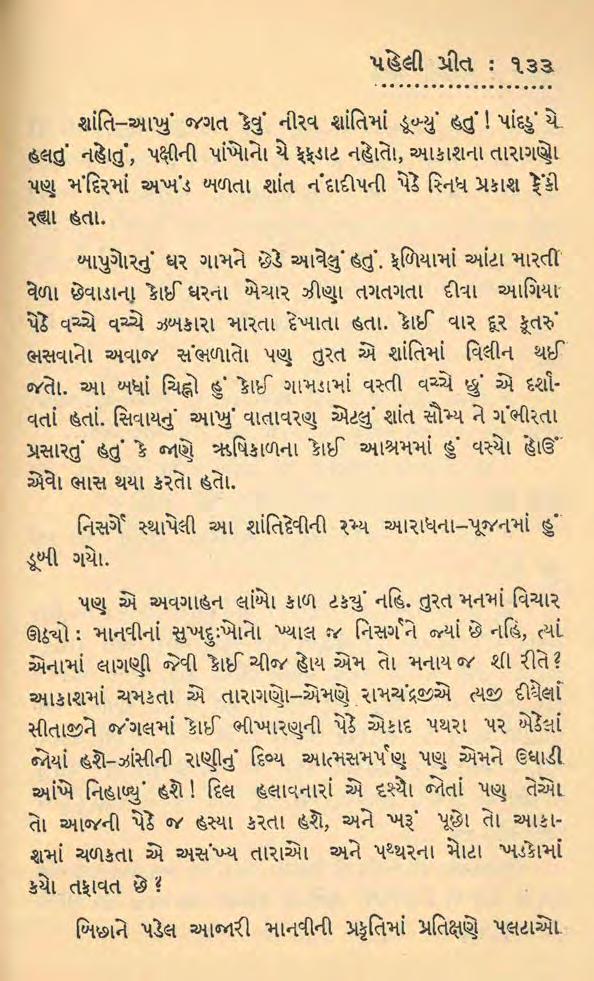 પહેલી પ્રીત : ૧૩૩
શાંતિ–આખું જગત કેવું નીરવ શાંતિમાં ડૂબ્યું હતું ! પાંદડું યે
હલતું નહોતું, પક્ષીની પાંખોનો યે ફફડાટ નહોતો, આકાશના તારાગણો
પણ મંદિરમાં અખંડ બળતા શાંત નંદાદીપની પેઠે સ્નિધ પ્રકાશ ફેંકી
રહ્યા હતા.
બાપુગોરનું ઘર ગામને છેડે આવેલું હતું. ફળિયામાં આંટા મારતી
વેળા છેવાડાના કોઈ ઘરના બેચાર ઝીણા તગતગતા દીવા આગિયા
પેઠે વચ્ચે વચ્ચે ઝબકારા મારતા દેખાતા હતા. કોઈ વાર દૂર કૂતરું
ભસવાનો અવાજ સંભળાતો પણ તુરત એ શાંતિમાં વિલીન થઈ
જતો. આ બધાં ચિહ્નો હું કોઈ ગામડામાં વસ્તી વચ્ચે છું એ દર્શા-
વતાં હતાં. સિવાયનું આખું વાતાવરણ એટલું શાંત સૌમ્ય ને ગંભીરતા
પ્રસારતું હતું કે જાણે ઋષિકાળના કોઈ આશ્રમમાં હું વસ્યો હોઉં
એવો ભાસ થયા કરતો હતો.
નિસર્ગે સ્થાપેલી આ શાંતિદેવીની રમ્ય આરાધના–પૂજનમાં હું
ડૂબી ગયો.
પણ એ અવગાહન લાંબો કાળ ટક્યું નહિ. તુરત મનમાં વિચાર
ઊઠ્યો : માનવીનાં સુખદુઃખોનો ખ્યાલ જ નિસર્ગને જ્યાં છે નહિ, ત્યાં
એનામાં લાગણી જેવી કોઈ ચીજ હોય એમ તો મનાય જ શી રીતે ?
આકાશમાં ચમકતા એ તારાગણો–એમણે રામચંદ્રજીએ ત્યજી દીધેલાં
સીતાજીને જંગલમાં કોઈ ભીખારણની પેઠે એકાદ પથરા પર બેઠેલાં
જોયાં હશે–ઝાંસીની રાણીનું દિવ્ય આત્મસમર્પણ પણ એમને ઉઘાડી
આંખે નિહાળ્યું હશે ! દિલ હલાવનારાં એ દૃશ્યો જોતાં પણ તેઓ
તો આજની પેઠે જ હસ્યા કરતા હશે, અને ખરૂં પૂછો તો આકા-
શમાં ચળકતા એ અસંખ્ય તારાઓ અને પથ્થરના મોટા ખડકોમાં
કયો તફાવત છે ?
બિછાને પડેલ આજારી માનવીની પ્રકૃતિમાં પ્રતિક્ષણે પલટાઓ